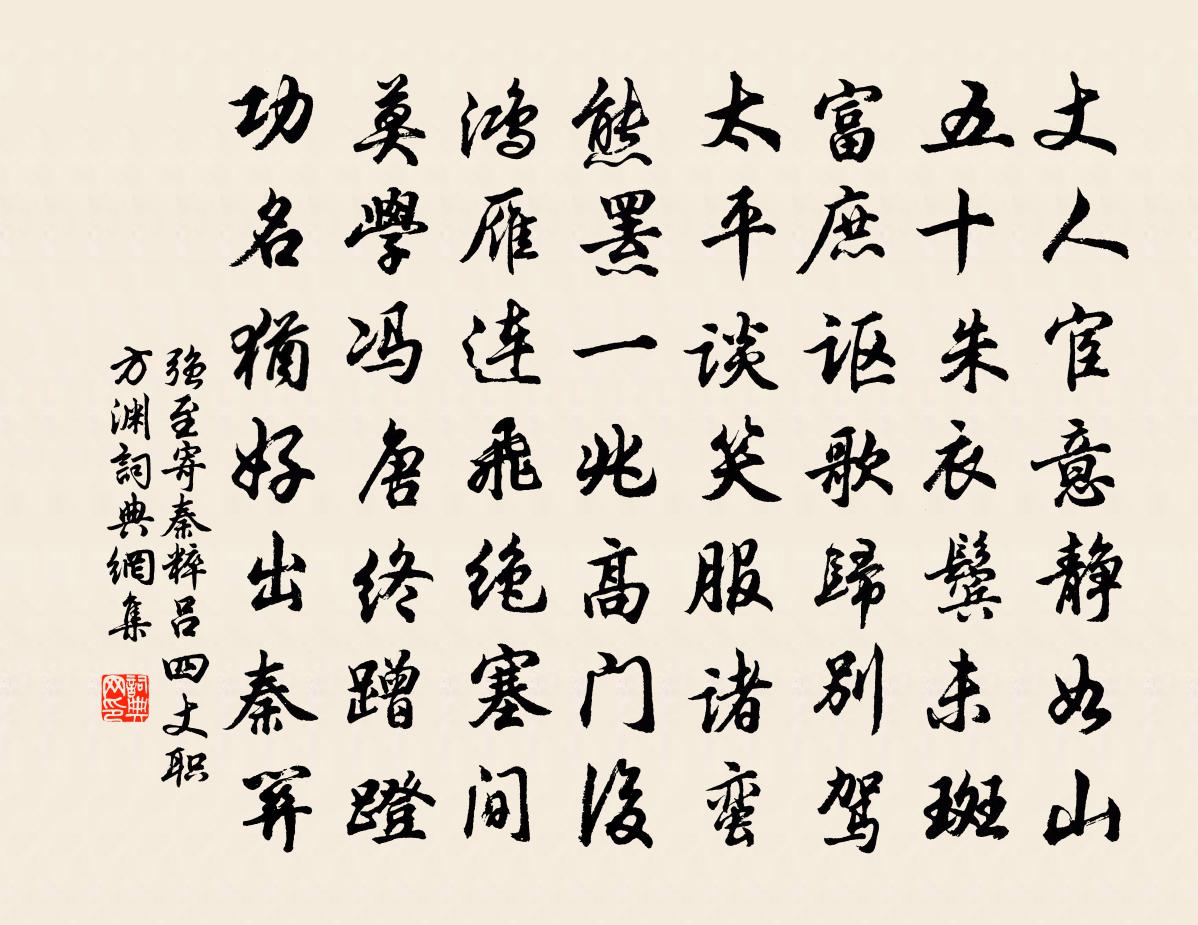 丈人宦意静如山
五十朱衣鬓未斑
富庶讴歌歸别驾
太平谈笑服诸蛮
熊罴一兆高门後
鸿雁连飛绝塞间
莫學冯唐终蹭蹬
功名猶好出秦关
强至寄秦粹吕四丈职
方渊詞典網集
詞典网印